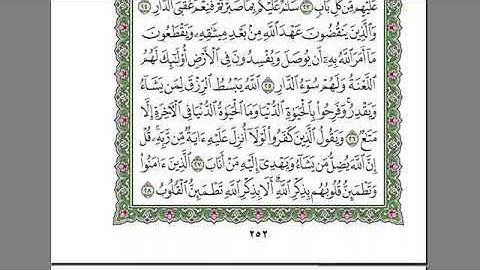 عَلَيْهِم مِّن كُلِّ بَابٍ ٢٣ سَلَٰمٌ عَلَيْكُم بِمَا صَبَرْتُمْ فَنِعْمَ عُقْبَى ٱلدَّارِ ٢٤
وَٱلَّذِينَ يَنقُضُونَ عَهْدَ ٱللَّهِ مِنۢ بَعْدِ مِيثَٰقِهِۦ وَيَقْطَعُونَ
مَآ أَمَرَ ٱللَّهُ بِهِۦٓ أَن يُوصَلَ وَيُفْسِدُونَ فِى ٱلْأَرْضِ أُو۟لَٰٓئِكَ لَهُمُ
ٱللَّعْنَةُ وَلَهُمْ سُوٓءُ ٱلدَّارِ ٢٥ ٱللَّهُ يَبْسُطُ ٱلرِّزْقَ لِمَن يَشَآءُ
وَيَقْدِرُ وَفَرِحُوا۟ بِٱلْحَيَوٰةِ ٱلدُّنْيَا وَمَا ٱلْحَيَوٰةُ ٱلدُّنْيَا فِى ٱلْءَاخِرَةِ إِلَّا
مَتَٰعٌ ٢٦ وَيَقُولُ ٱلَّذِينَ كَفَرُوا۟ لَوْلَآ أُنزِلَ عَلَيْهِ ءَايَةٌ مِّن رَّبِّهِۦ قُلْ
إِنَّ ٱللَّهَ يُضِلُّ مَن يَشَآءُ وَيَهْدِىٓ إِلَيْهِ مَنْ أَنَابَ ٢٧ ٱلَّذِينَ ءَامَنُوا۟
وَتَطْمَئِنُّ قُلُوبُهُم بِذِكْرِ ٱللَّهِ أَلَا بِذِكْرِ ٱللَّهِ تَطْمَئِنُّ ٱلْقُلُوبُ ٢٨
٢٥٢